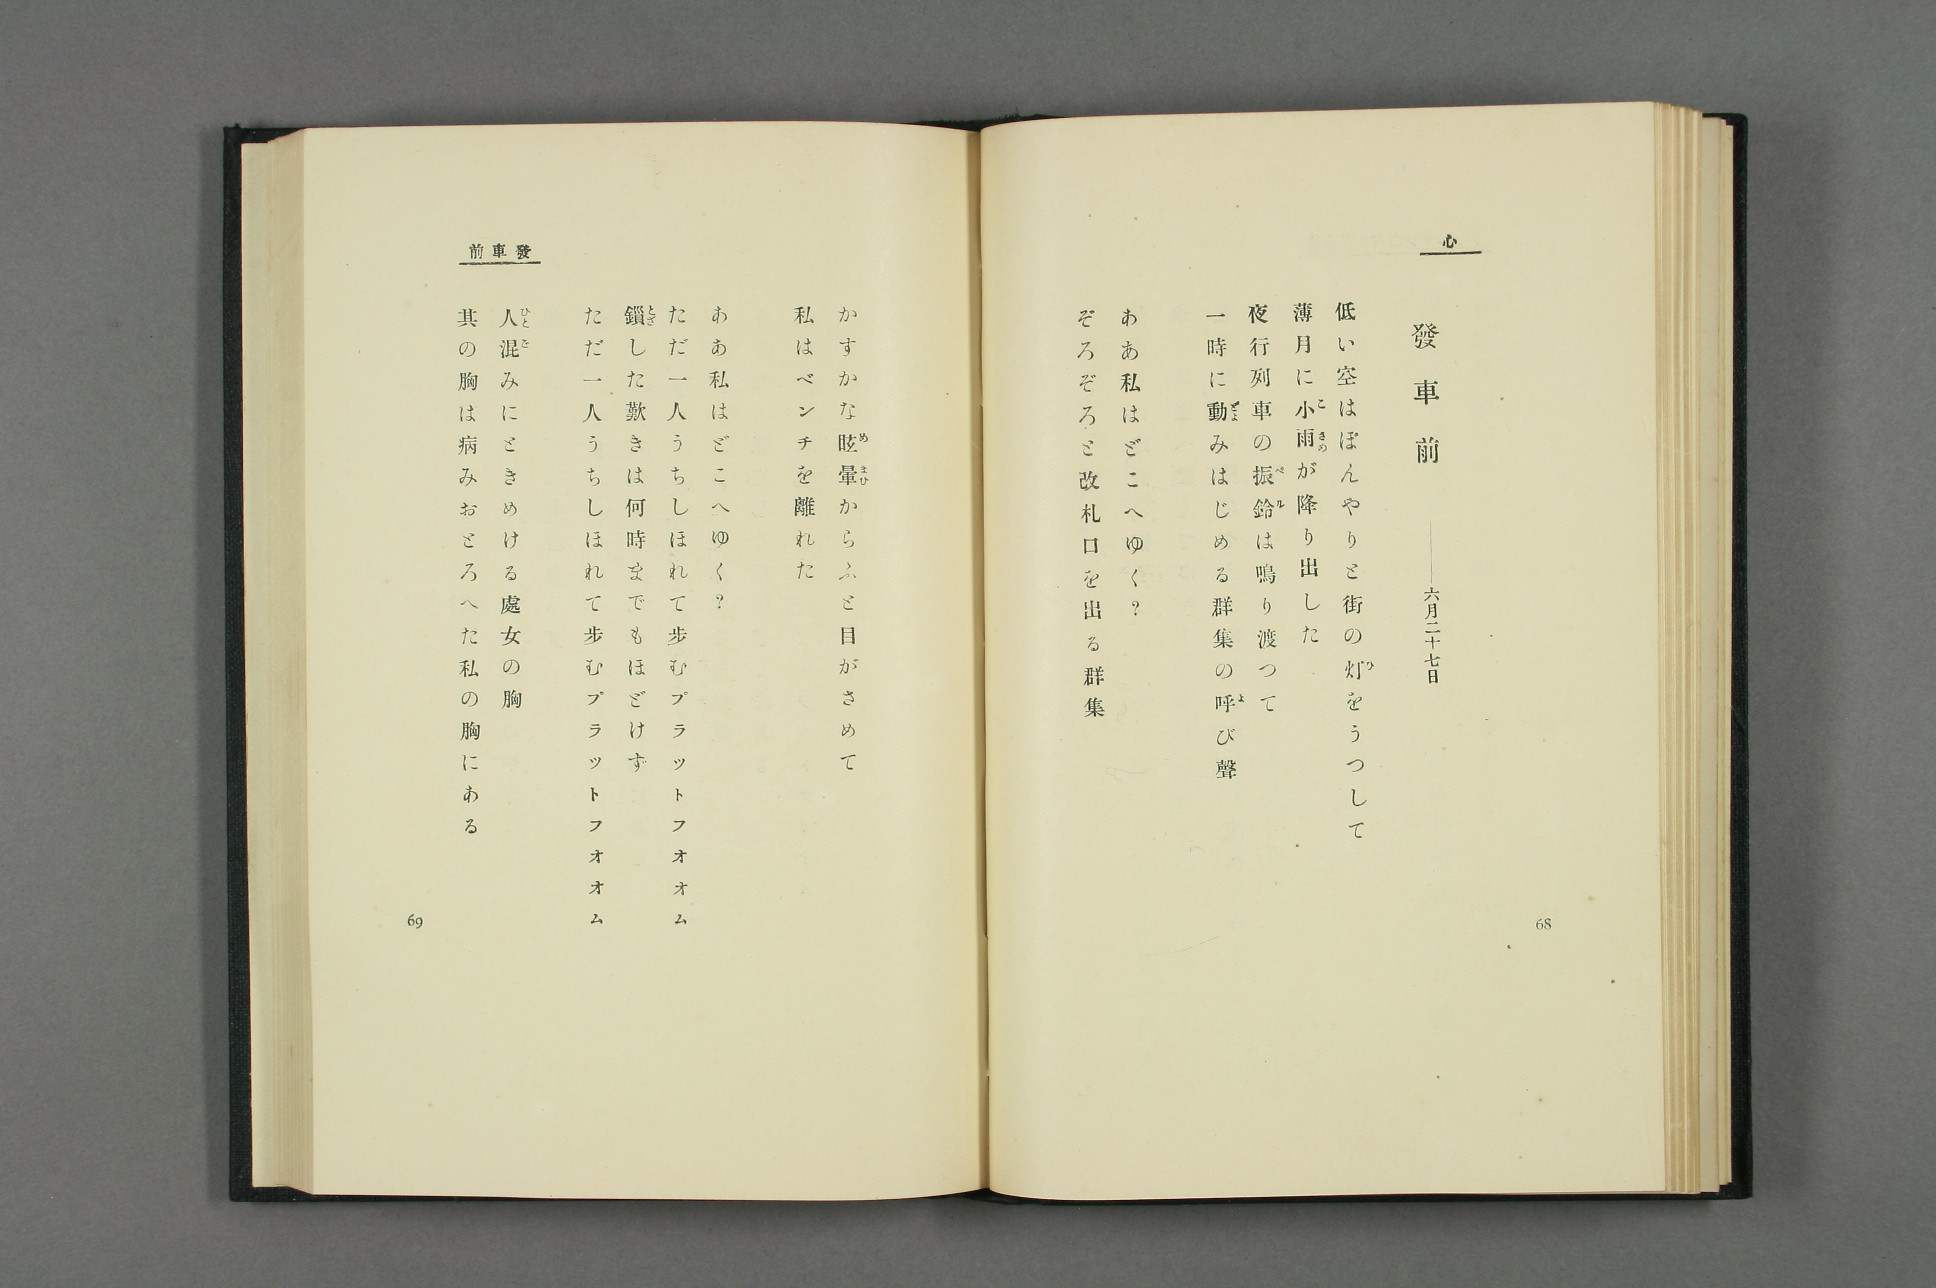 心
發車前 ――六月二十七日
低い空はぼんやりと街の灯をうつして
薄月に小雨が降り出した
夜行列車の振鈴は鳴り渡つて
一時に動みはじめる群集の呼び聲
ああ私はどこへゆく?
ぞろぞろと改札口を出る群集
68
發車前
かすかな眩暈からふと目がさめて
私はベンチを離れた
ああ私はどこへゆく?
ただ一人うちしほれて歩むプラットフオオム
鎖した歎きは何時までもほどけず
ただ一人うちしほれて歩むプラットフオオム
人混みにときめける處女の胸
其の胸は病みおとろへた私の胸にある
69